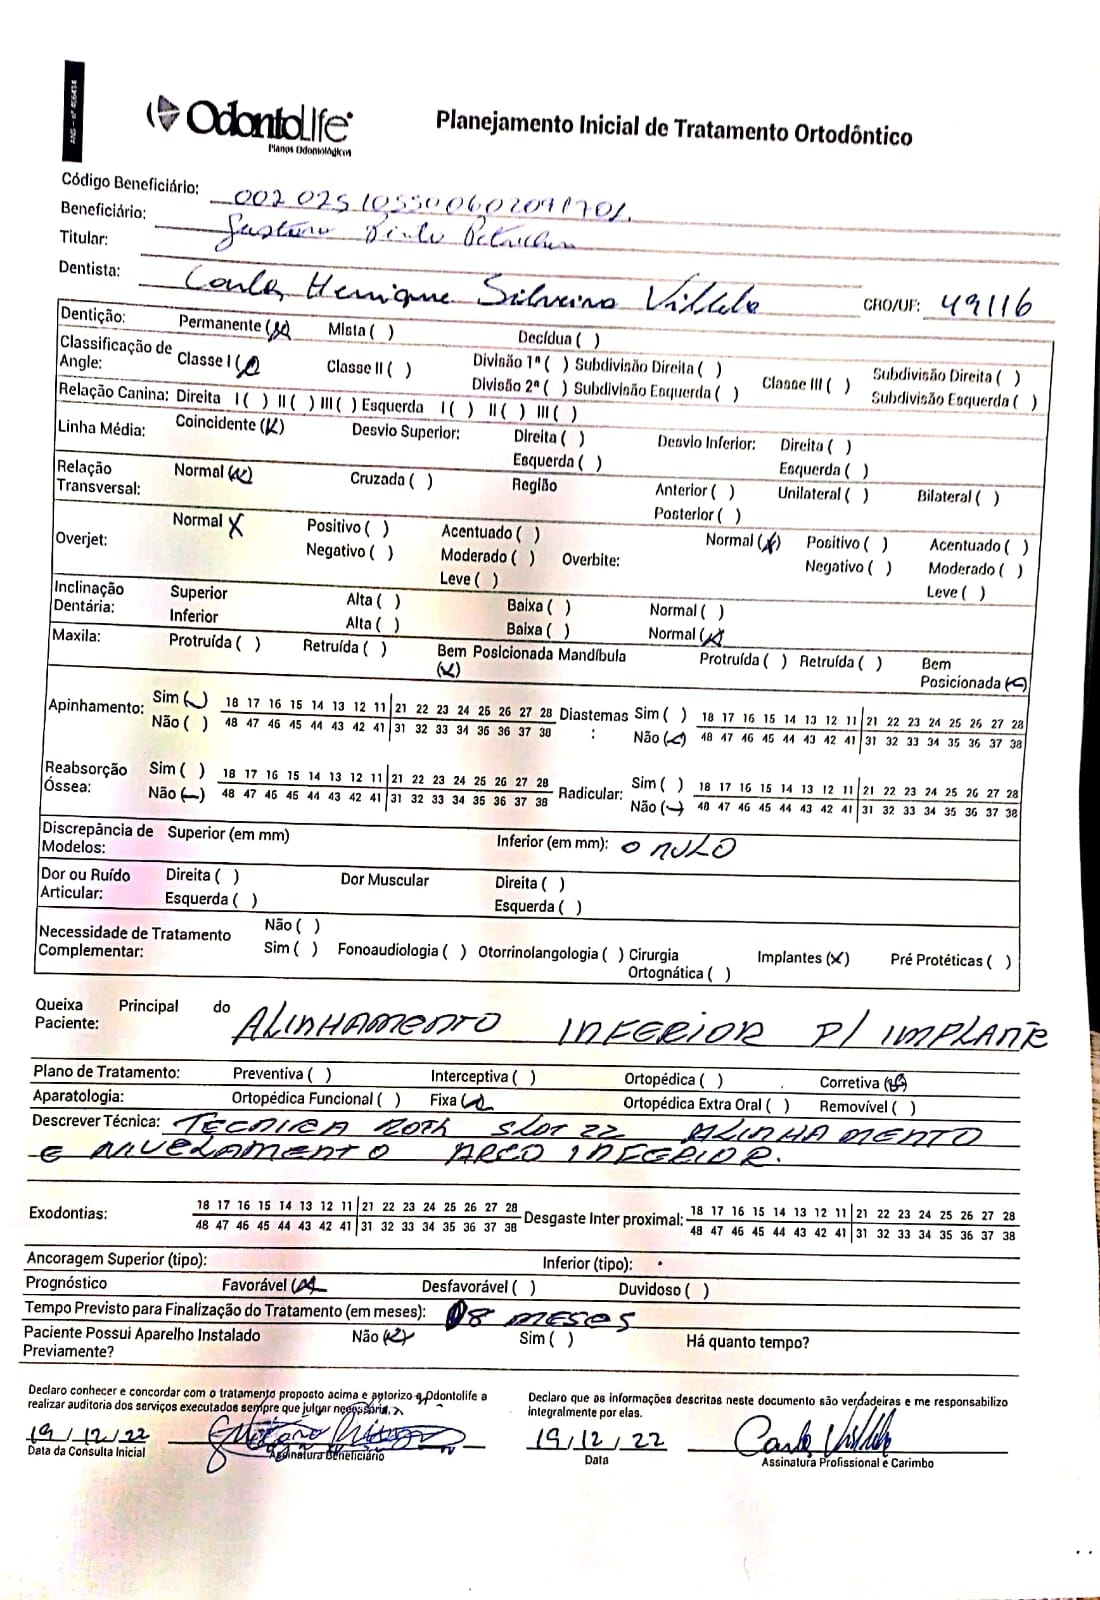 ANS - nº 406414
OdontoLife
Planos Odontológicos
Planejamento Inicial de Tratamento Ortodôntico
Código Beneficiário:
Beneficiário: Gustavo Pinto
Titular:
Dentista: Carlos Henrique Silveira Villela CRO/UF: 49116
Dentição: Permanente (X) Mista ( ) Decídua ( )
Classificação de Angle: Classe I (X) Classe II ( ) Divisão 1ª ( ) Subdivisão Direita ( ) Classe III ( ) Subdivisão Direita ( )
Divisão 2ª ( ) Subdivisão Esquerda ( ) Subdivisão Esquerda ( )
Relação Canina: Direita I ( ) II ( ) III ( ) Esquerda I ( ) II ( ) III ( )
Linha Média: Coincidente (X) Desvio Superior: Direita ( ) Desvio Inferior: Direita ( )
Esquerda ( ) Esquerda ( )
Relação Transversal: Normal (X) Cruzada ( ) Região Anterior ( ) Unilateral ( ) Bilateral ( )
Posterior ( )
Overjet: Normal X Positivo ( ) Acentuado ( ) Overbite: Normal (X) Positivo ( ) Acentuado ( )
Negativo ( ) Moderado ( ) Negativo ( ) Moderado ( )
Leve ( ) Leve ( )
Inclinação Dentária: Superior Alta ( ) Baixa ( ) Normal ( )
Inferior Alta ( ) Baixa ( ) Normal (X)
Maxila: Protruída ( ) Retruída ( ) Bem Posicionada (X) Mandíbula Protruída ( ) Retruída ( ) Bem Posicionada (X)
Apinhamento: Sim (X) 18 17 16 15 14 13 12 11 21 22 23 24 25 26 27 28 Diastemas: Sim ( ) 18 17 16 15 14 13 12 11 21 22 23 24 25 26 27 28
Não ( ) 48 47 46 45 44 43 42 41 31 32 33 34 36 36 37 38 Não (X) 48 47 46 45 44 43 42 41 31 32 33 34 35 36 37 38
Reabsorção Óssea: Sim ( ) 18 17 16 15 14 13 12 11 21 22 23 24 25 26 27 28 Radicular: Sim ( ) 18 17 16 15 14 13 12 11 21 22 23 24 25 26 27 28
Não (X) 48 47 46 45 44 43 42 41 31 32 33 34 35 36 37 38 Não (X) 48 47 46 45 44 43 42 41 31 32 33 34 35 36 37 38
Discrepância de Modelos: Superior (em mm) Inferior (em mm): O NULO
Dor ou Ruído Articular: Direita ( ) Dor Muscular Direita ( )
Esquerda ( ) Esquerda ( )
Necessidade de Tratamento Complementar: Não ( )
Sim ( ) Fonoaudiologia ( ) Otorrinolangologia ( ) Cirurgia Ortognática ( ) Implantes (X) Pré Protéticas ( )
Queixa Principal do Paciente: ALINHAMENTO INFERIOR P/ IMPLANTE
Plano de Tratamento: Preventiva ( ) Interceptiva ( ) Ortopédica ( ) Corretiva (X)
Aparatologia: Ortopédica Funcional ( ) Fixa (X) Ortopédica Extra Oral ( ) Removível ( )
Descrever Técnica: TECNICA ROTH SLOT 22 ALINHAMENTO
E NIVELAMENTO ARCO INFERIOR.
Exodontias: 18 17 16 15 14 13 12 11 21 22 23 24 25 26 27 28 Desgaste Inter proximal: 18 17 16 15 14 13 12 11 21 22 23 24 25 26 27 28
48 47 46 45 44 43 42 41 31 32 33 34 35 36 37 38 48 47 46 45 44 43 42 41 31 32 33 34 35 36 37 38
Ancoragem Superior (tipo): Inferior (tipo):
Prognóstico Favorável (X) Desfavorável ( ) Duvidoso ( )
Tempo Previsto para Finalização do Tratamento (em meses): 08 MESES
Paciente Possui Aparelho Instalado Previamente? Não (X) Sim ( ) Há quanto tempo?
Declaro conhecer e concordar com o tratamento proposto acima e autorizo a Odontolife a realizar auditoria dos serviços executados sempre que julgar necessária.
Declaro que as informações descritas neste documento são verdadeiras e me responsabilizo integralmente por elas.
19/12/22 19/12/22 Carlos Villela
Data da Consulta Inicial Assinatura Beneficiário Data Assinatura Profissional e Carimbo